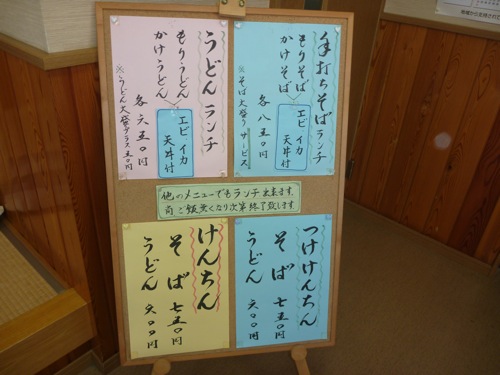 手打ちそばランチ
もりそば
かけそば
各 八五〇円
エビ イカ
天丼付
※そば大盛りサービス
うどんランチ
もりうどん
かけうどん
各 六五〇円
エビ イカ
天丼付
※うどん大盛プラス五〇円
他のメニューでもランチ出来ます。
尚ご飯無くなり次第終了致します
つけけんちん
そば 七五〇円
うどん 六〇〇円
けんちん
そば 七五〇円
うどん 六〇〇円